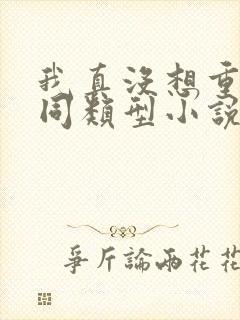 我真沒想重
同類型小説
爭斤論兩花花